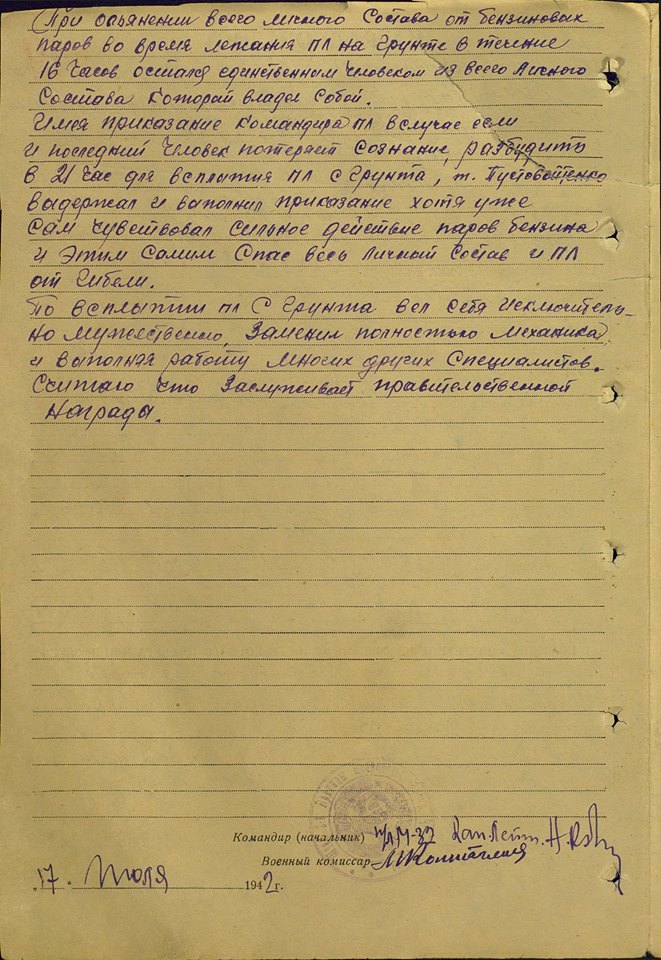 При опьянении всего личного состава от бензиновых
паров во время лежания ПЛ на грунте в течение
16 часов остался единственным человеком из всего личного
состава который владел собой.
Имея приказание командира ПЛ в случае если
и последний человек потеряет сознание, разбудить
в 21 час для всплытия ПЛ с грунта, т. Пустовойтенко
выдержал и выполнил приказание хотя уже
сам чувствовал сильное действие паров бензина
и этим самим спас весь личный состав и ПЛ
от гибели.
По всплытии пл с грунта вел себя исключитель-
но мужественно, заменил полностью механика
и выполняя работу многих других специалистов.
Считаю что заслуживает правительственной
награды.
Командир (начальник) п/л М-32 Кап.Лейт.
Военный комиссар
„17" Июля 1942 г.